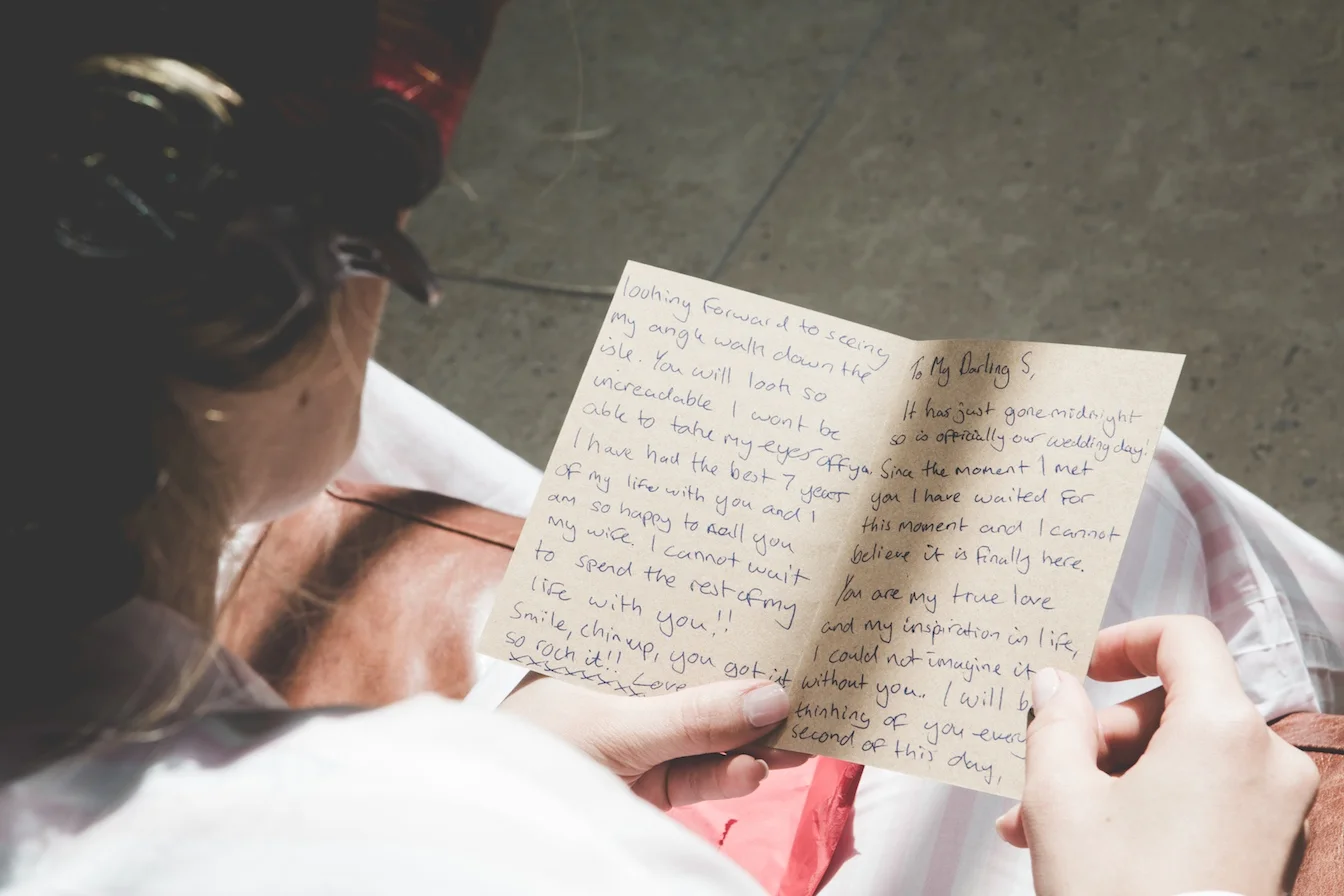 To My Darling S,
It has just gone midnight
so is officially our wedding day!
Since the moment I met
you I have waited for
this moment and I cannot
believe it is finally here.
You are my true love
and my inspiration in life,
I could not imagine it
without you.. I will
thinking of you every
second of this day,
looking forward to seeing
my angle walk down the
isle. You will look so
increadable I wont be
able to take my eyes off ya.
I have had the best 7 years
of my life with you and I
am so happy to call you
my wife. I cannot wait
to spend the rest of my
life with you!!
Smile, chin up, you got it
so rock it!!
xxxxxxxx Love